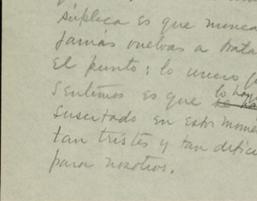 súplica es que nunca
jamás vuelvas a trata
el punto; lo único q
sentimos es que lo hay
suscitado en estos mome
tan tristes y tan difíc
para nosotros.